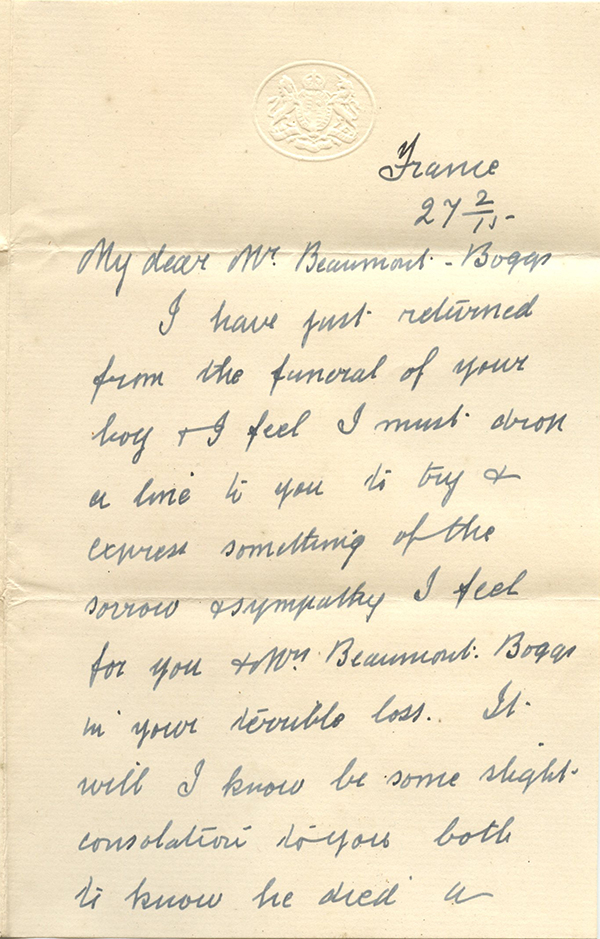 France
27 2/15
My dear Mr. Beaumont-Boggs
I have just returned
from the funeral of your
boy & I feel I must drop
a line to you to try &
express something of the
sorrow & sympathy I feel
for you & Mrs. Beaumont. Boggs
in your terrible loss. It
will I know be some slight
consolation to you both
to know he died a